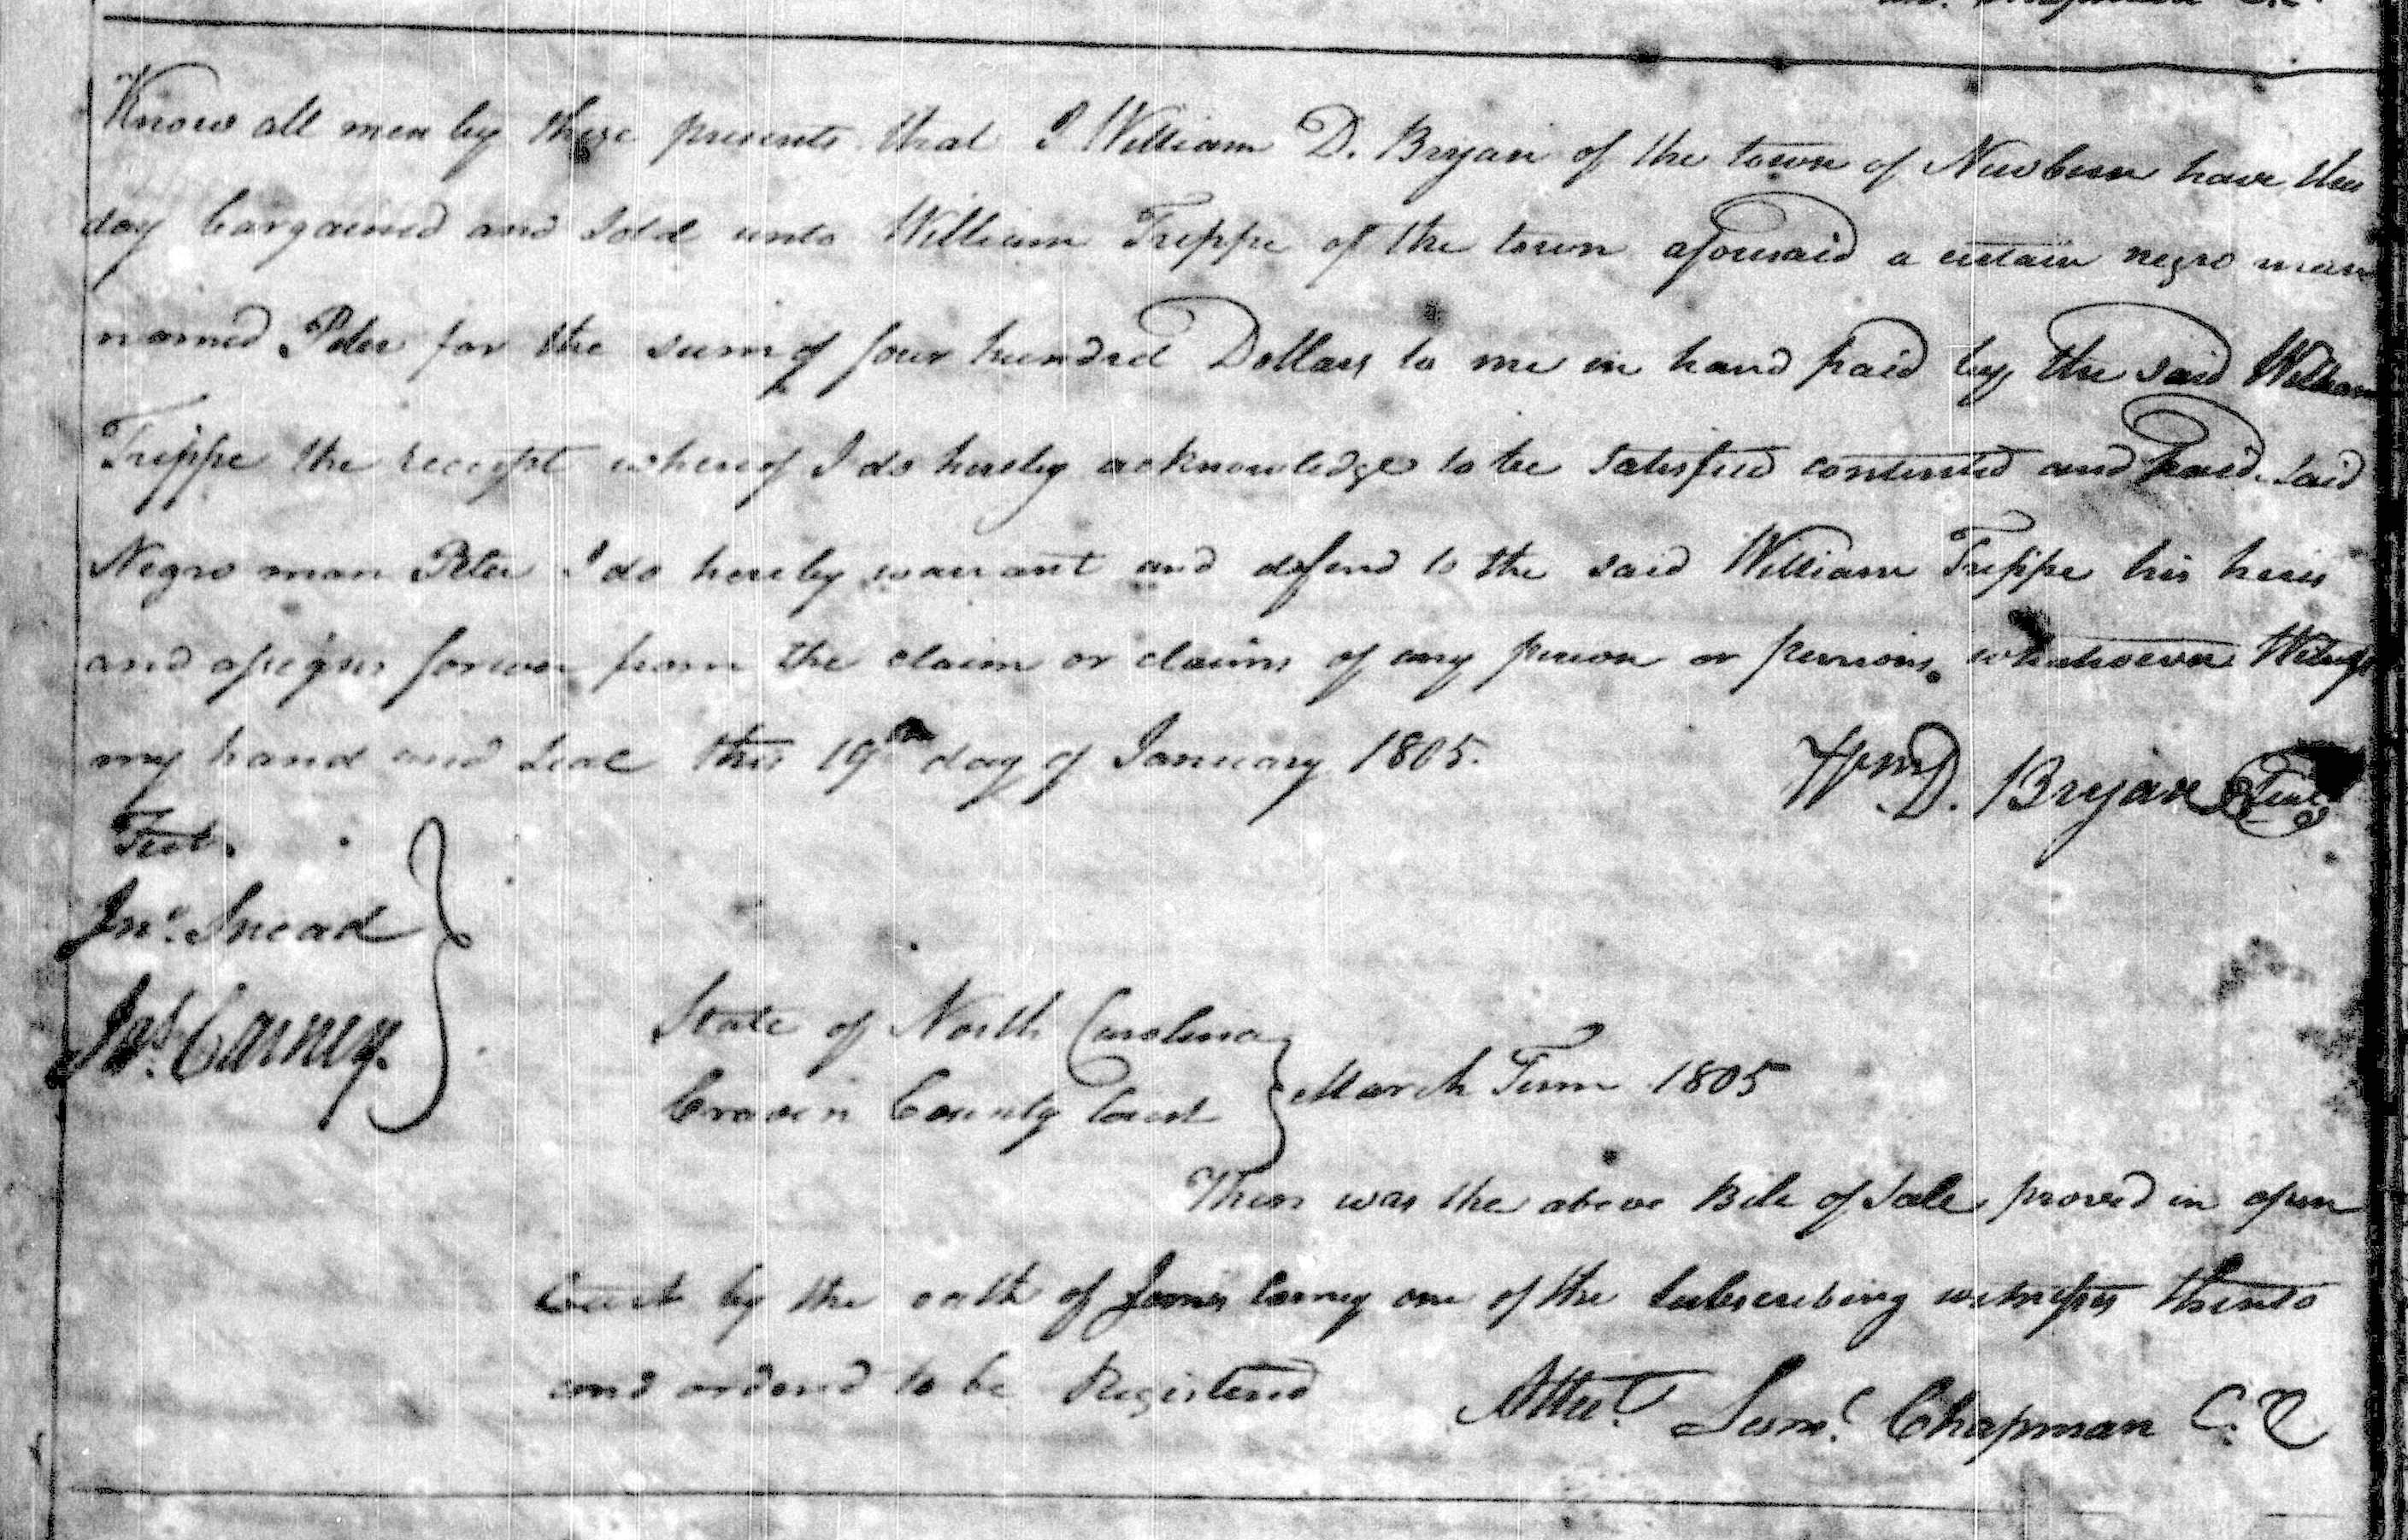 Know all men by these presents that I William D. Bryan of the town of Newbern have this
day bargained and sold unto William Trippe of the town aforesaid a certain negro man
named Peter for the sum of four hundred Dollars to me in hand paid by the said William
Trippe the receipt whereof I do hereby acknowledge to be satisfied contented and paid. Said
Negro man Peter I do hereby warrant and defend to the said William Trippe his heirs
and assigns forever from the claim or claims of any person or persons whatsoever Witness
my hand and seal this 19th day of January 1805.
Wm D. Bryan Seal
Test.
Jno. Snead
Jas. Carney.
State of North Carolina
Craven County Court
March Term 1805
Then was the above Bill of Sale proved in open
Court by the oath of James Carney one of the Subscribing witnesses thereto
and ordered to be Registered
Attest. Saml. Chapman C.C